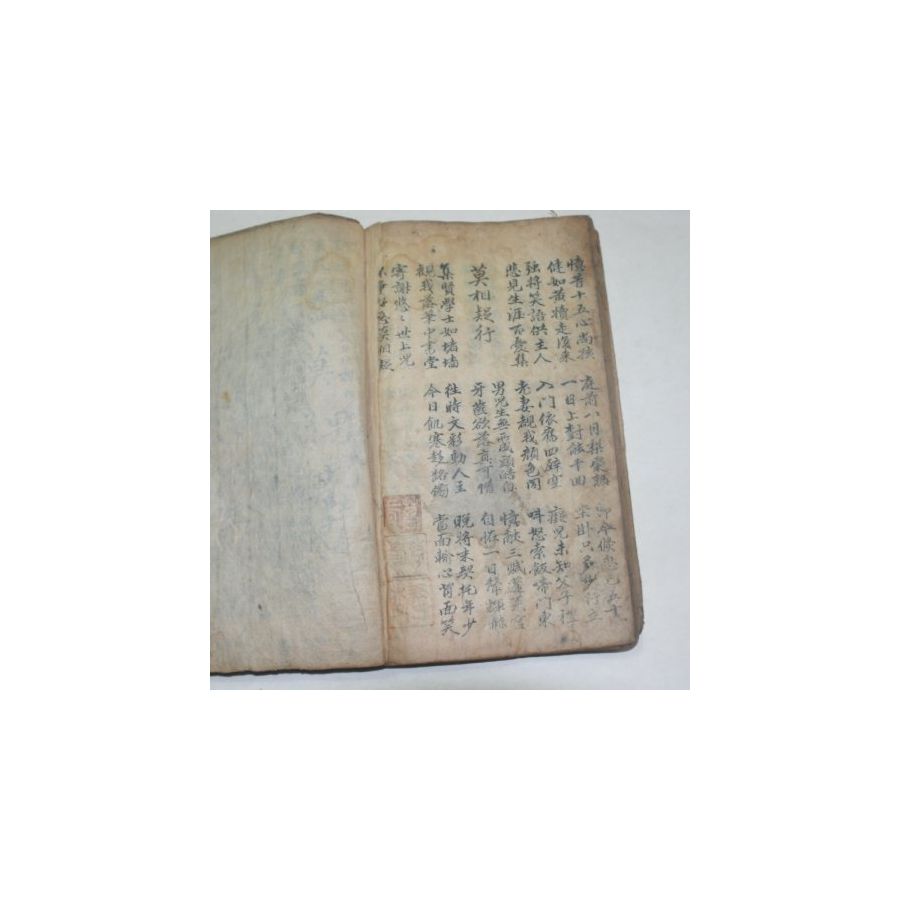 憶昔十五心尚孩
健如黃犢走復來
庭前八月梨棗熟
一日上樹能千回
即今倏忽已五十
坐卧只多少行立
強將笑語供主人
悲見生涯百憂集
入门依舊四壁空
老妻覩我顏色同
癡兒未知父子礼
呌怒索飯啼門東
莫相疑行
男兒生無所成頭皓白
牙齒欲落真可惜
憶献三賦蓬萊宮
自怪一日聲輝赫
集賢學士如堵墻
覩我落筆中書堂
往時文彩動人主
今日飢寒趍路
晩將末契托年少
當面輸心背面笑
寄謝悠〻世上兒
不爭好惡莫相疑